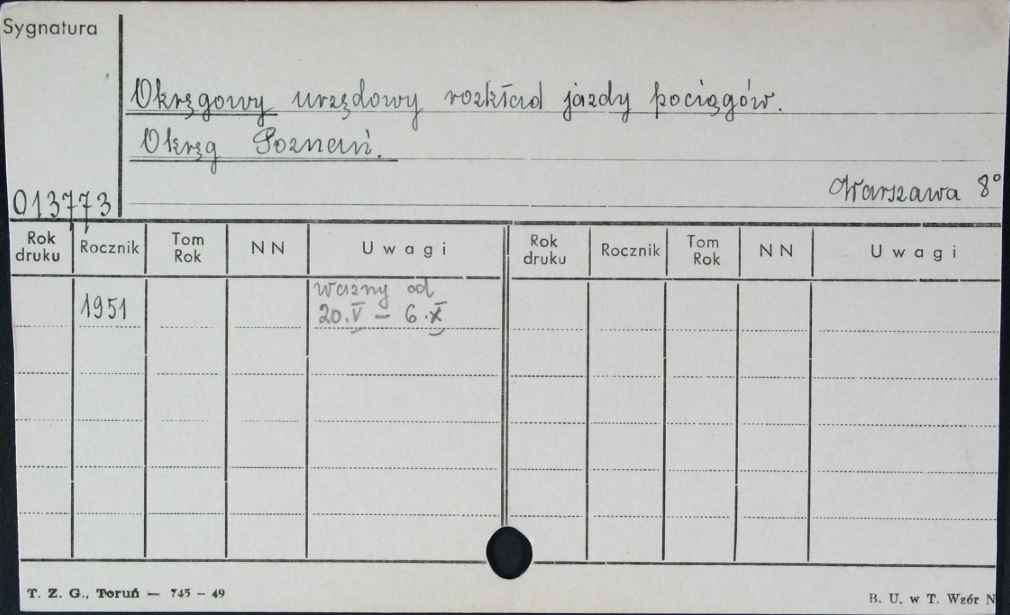 Sygnatura
Okręgowy urzędowy rozkład jazdy pociągów.
Okręg Poznań.
Warszawa 8°
013773
Rok druku Rocznik Tom Rok N N U w a g i Rok druku Rocznik Tom Rok N N U w a g i
1951 ważny od
20.V – 6.X
T. Z. G., Toruń — 745 – 49
B. U. w T. Wzór N